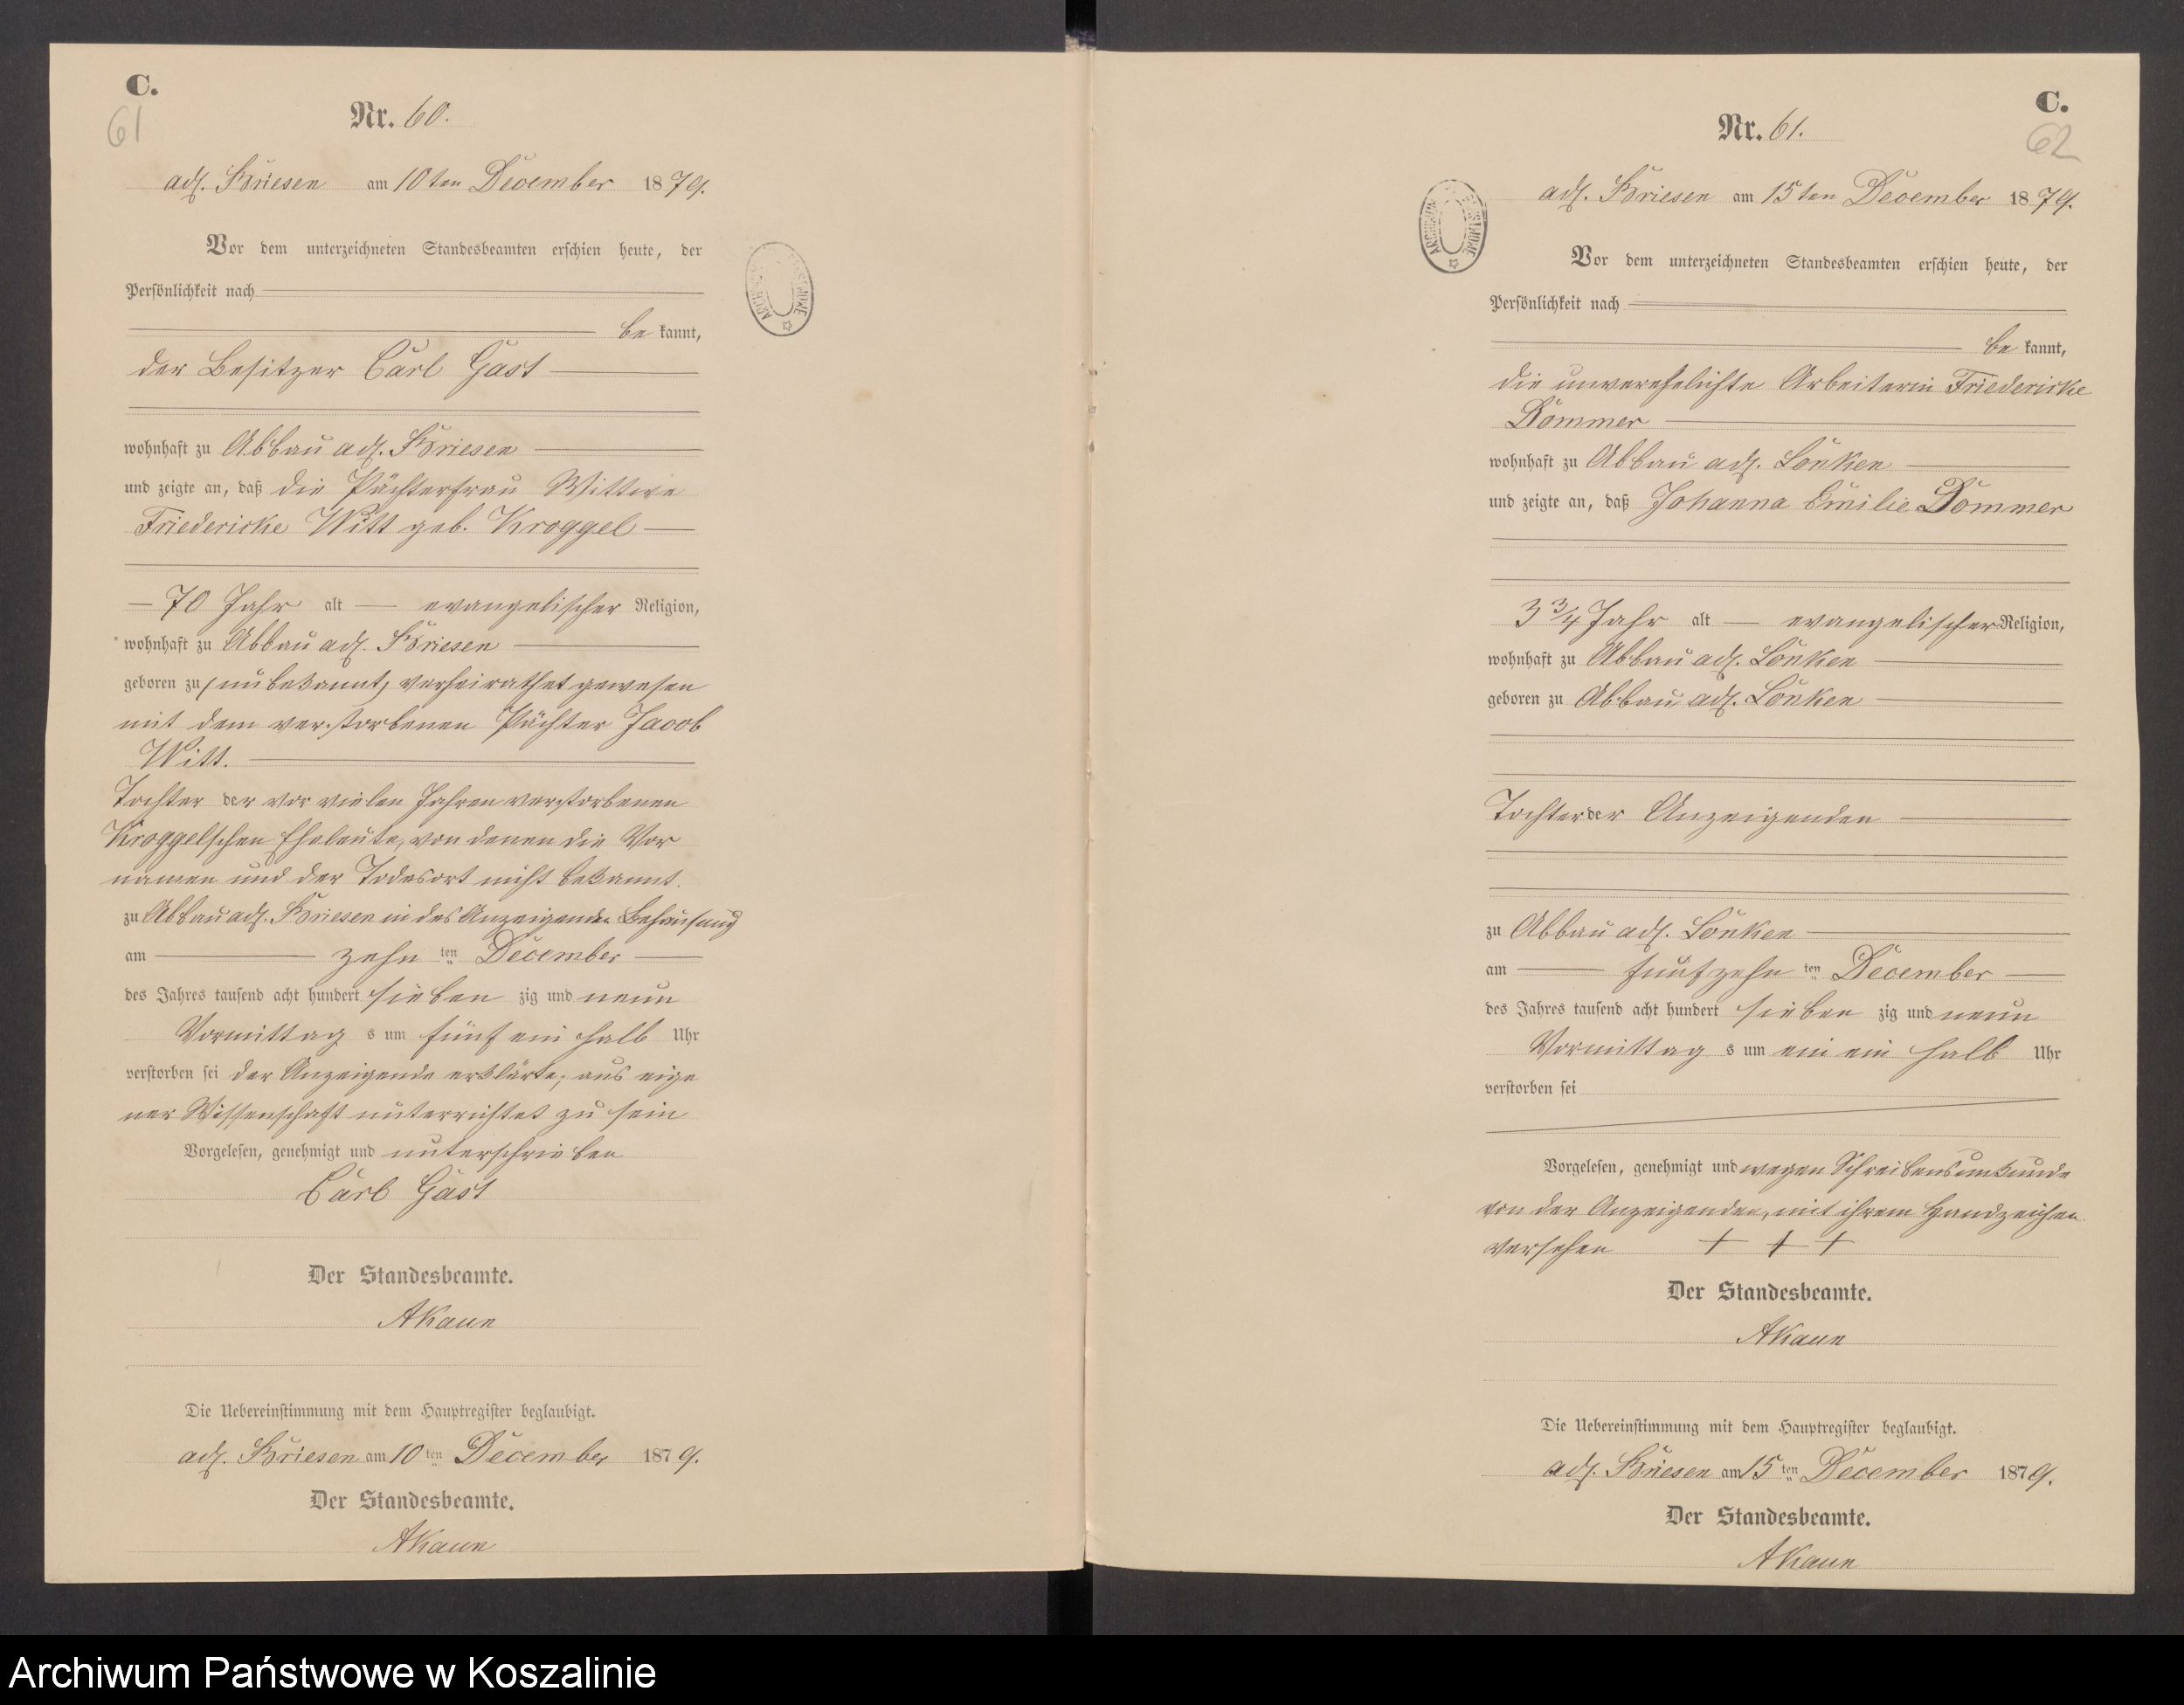 C.
61
Nr. 60.
adl. Briesen am 10ten December 1879.
Vor dem unterzeichneten Standesbeamten erschien heute, der
Persönlichkeit nach
be kannt,
der Besitzer Carl Gast
wohnhaft zu Abbau adl. Briesen
und zeigte an, daß die Pächterfrau Wittwe
Friedericke Witt geb. Kroggel
70 Jahr alt evangelischer Religion,
wohnhaft zu Abbau adl. Briesen
geboren zu (unbekannt) verheirathet gewesen
mit dem verstorbenen Pächter Jacob
Witt.
Tochter der vor vielen Jahren verstorbenen
Kroggelschen Eheleute, von denen die Vor
namen und der Todesort nicht bekannt.
zu Abbau adl. Briesen in des Anzeigenden Behausung
am zehn ten December
des Jahres tausend acht hundert sieben zig und neun
Vormittag s um fünf ein halb Uhr
verstorben sei der Anzeigende erklärte, aus eige
ner Wissenschaft unterrichtet zu sein
Vorgelesen, genehmigt und unterschrieben
Carl Gast
Der Standesbeamte.
AKaun
Die Uebereinstimmung mit dem Hauptregister beglaubigt.
adl. Briesen am 10 ten December 1879.
Der Standesbeamte.
AKaun
C.
62
Nr. 61.
adl. Briesen am 15ten December 1879.
Vor dem unterzeichneten Standesbeamten erschien heute, der
Persönlichkeit nach
be kannt,
die unverehelichte Arbeiterin Friedericke
Dommer
wohnhaft zu Abbau adl. Lonken
und zeigte an, daß Johanna Emilie Dommer
3 3/4 Jahr alt evangelischer Religion,
wohnhaft zu Abbau adl. Lonken
geboren zu Abbau adl. Lonken
Tochter der Anzeigenden
zu Abbau adl. Lonken
am fünfzehn ten December
des Jahres tausend acht hundert sieben zig und neun
Vormittag s um ein ein halb Uhr
verstorben sei
Vorgelesen, genehmigt und wegen Schreibensunkunde
von der Anzeigenden, mit ihrem Handzeichen
versehen + + +
Der Standesbeamte.
AKaun
Die Uebereinstimmung mit dem Hauptregister beglaubigt.
adl. Briesen am 15 ten December 1879.
Der Standesbeamte.
AKaun
Archiwum Państwowe w Koszalinie